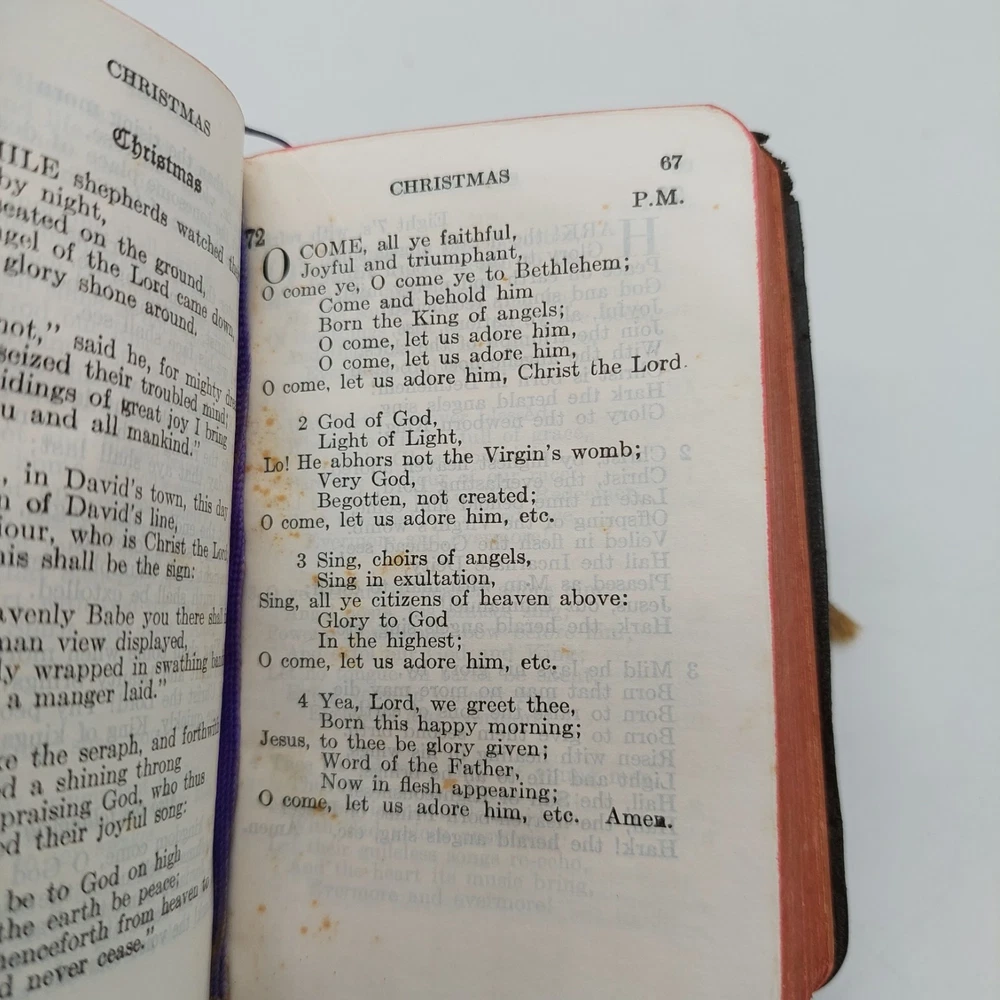 CHRISTMAS
Christmas
shepherds watched
by night,
on the ground,
of the Lord came down,
glory shone around.
not," said he, for mighty
seized their troubled mind;
of great joy I bring
and all mankind."
in David's town, this day
of David's line,
who is Christ the Lord
shall be the sign:
Babe you there shall
view displayed,
wrapped in swathing
a manger laid."
the seraph, and forthwith
a shining throng
praising God, who thus
their joyful song:
be to God on high
the earth be peace;
from heaven to
never cease."
CHRISTMAS 67
P.M.
72
O COME, all ye faithful,
Joyful and triumphant,
O come ye, O come ye to Bethlehem;
Come and behold him
Born the King of angels;
O come, let us adore him,
O come, let us adore him,
O come, let us adore him, Christ the Lord.
2 God of God,
Light of Light,
Lo! He abhors not the Virgin's womb;
Very God,
Begotten, not created;
O come, let us adore him, etc.
3 Sing, choirs of angels,
Sing in exultation,
Sing, all ye citizens of heaven above:
Glory to God
In the highest;
O come, let us adore him, etc.
4 Yea, Lord, we greet thee,
Born this happy morning;
Jesus, to thee be glory given;
Word of the Father,
Now in flesh appearing;
O come, let us adore him, etc. Amen.